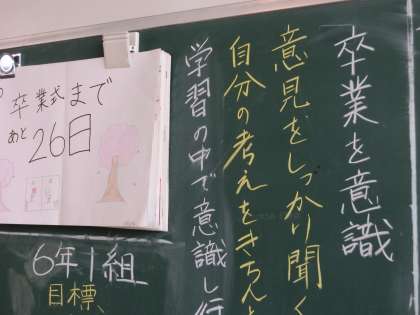 卒業を意識
意見をしっかり聞く
自分の考えをきちんと
学習の中で意識し行
卒業式まで
あと
26日
6年1組
目標